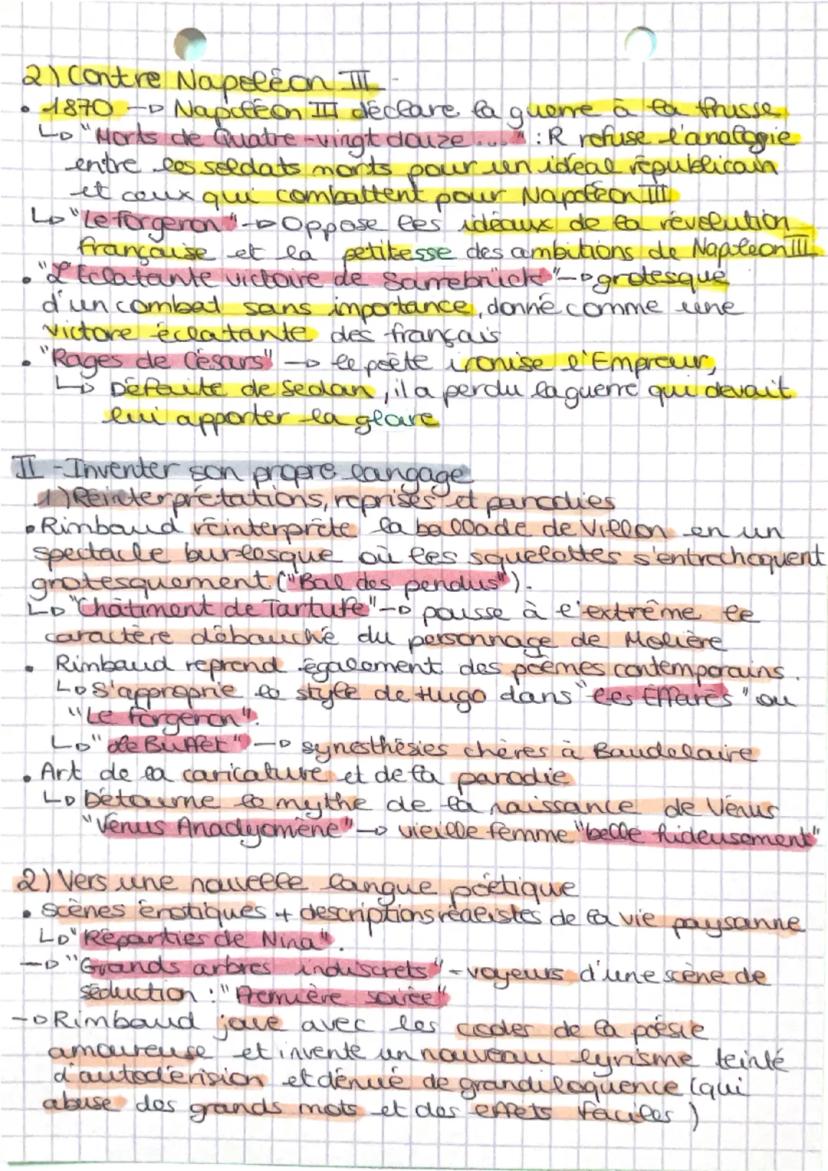 2) Contre Napoléon III -
• 1870 → Napoléon III déclare la guerre à la Prusse
↳ "Morts de Quatre-vingt douze ..." : R refuse l'analogie
entre les soldats morts pour un idéal républicain
et ceux qui combattent pour Napoléon III
↳ "Le Forgeron" → Oppose les idéaux de la révolution
française et la petitesse des ambitions de Napoléon III
• "L'Eclatante victoire de Sarrebrück" → grotesque
d'un combat sans importance, donné comme une
victore éclatante des français
• "Rages de Césars" → le poète ironise l'Empreur,
↳ Défaite de Sedan, il a perdu la guerre qui devait
lui apporter la gloire
II - Inventer son propre langage
1) Réinterprétations, reprises et parodies
• Rimbaud réinterprète la ballade de Villon en un
spectacle burlesque où les squelettes s'entrechoquent
grotesquement ("Bal des pendus").
↳ "Châtiment de Tartufe" → pousse à l'extrême le
caractère débauché du personnage de Molière
• Rimbaud reprend également des poèmes contemporains.
↳ S'approprie le style de Hugo dans "Les Effarés" ou
"Le Forgeron".
↳ "Le Buffet" → synesthésies chères à Baudelaire
• Art de la caricature et de la parodie
↳ Détourne le mythe de la naissance de Vénus
"Vénus Anadyomène" → vieille femme "belle hideusement"
2) Vers une nouvelle langue poétique
• scènes érotiques + descriptions réalistes de la vie paysanne
↳ "Réparties de Nina".
→ "Grands arbres indiscrets" - voyeurs d'une scène de
séduction : "Première soirée"
→ Rimbaud joue avec les codes de la poésie
amoureuse et invente un nouveau lyrisme teinté
d'autodérision et dénué de grandiloquence (qui
abuse des grands mots et des effets faciles)